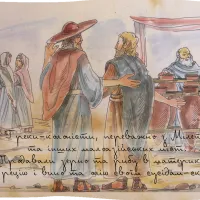 Греки-колоністи, переважно з Мілету
та інших малоазійських міст
Продавали зерно та рибу в материкову
Грецію і вино та олію своїм сусідам-ск